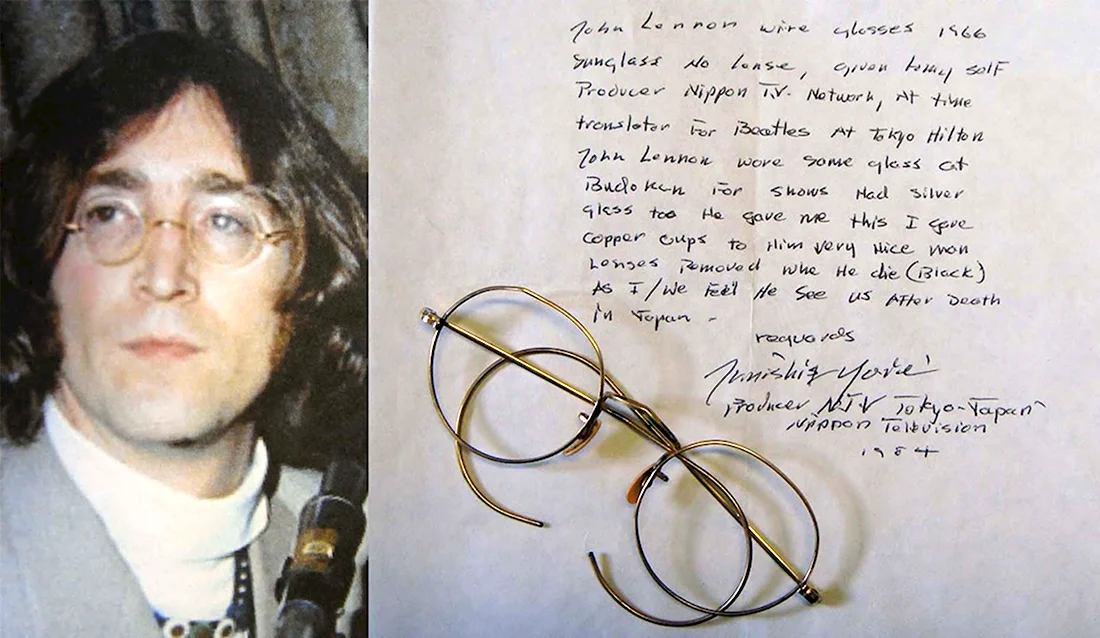 John Lennon wire glosses 1966
Sunglass No Lense, given to my self
Producer Nippon T.V. Network, At time
translator For Beatles At Tokyo Hilton
John Lennon wore same glass at
Budokan For shows Had Silver
glass too He gave me this I gave
copper cups to Him very Nice man
Lenses Removed whe He die (Black)
As I/we Feel He See us After Death
in Japan -
reguards
Producer N.T.V Tokyo-Japan
Nippon Television
1984